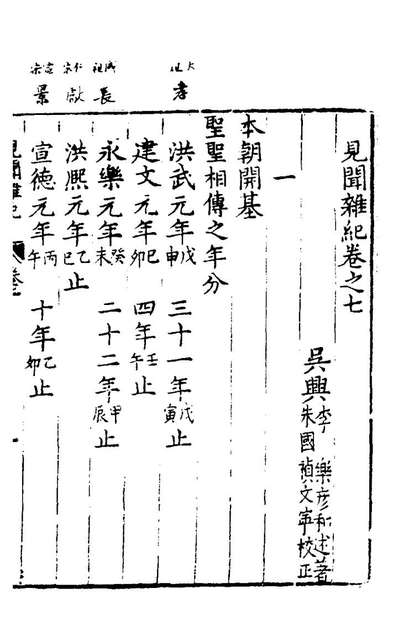 見聞雜紀卷之七
吳興李樂彥和述著
朱國禎文寧校正
一
本朝開基
聖聖相傳之年分
太祖 孝
洪武元年戊申 三十一年戊寅止
建文元年己卯 四年壬午止
成祖 長
永樂元年癸未 二十二年甲辰止
仁宗 獻
洪熙元年乙巳止
宣宗 景
宣德元年丙午 十年乙卯止
見聞雜紀 卷七